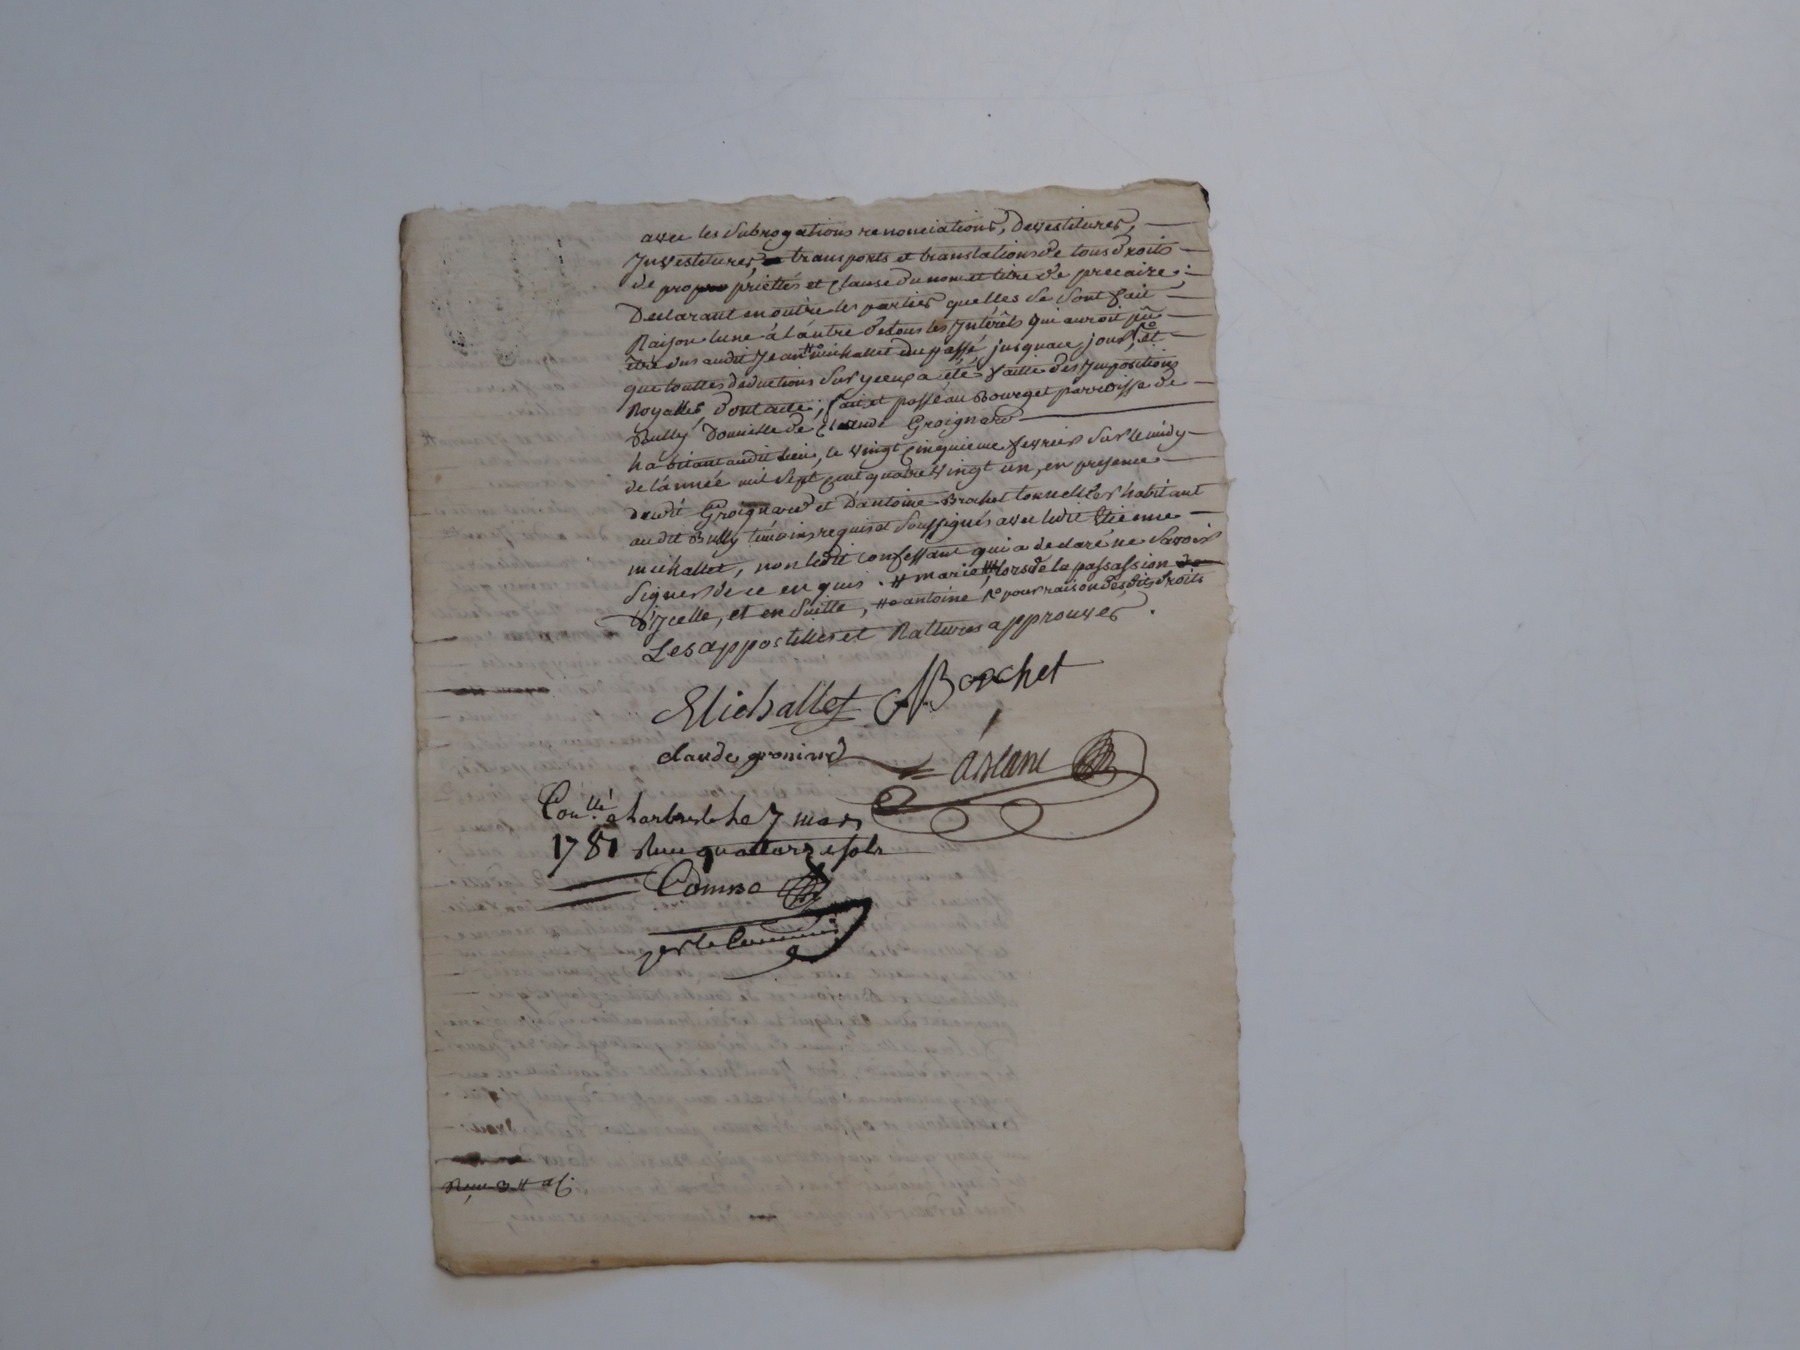 avec les subrogations renonciations, devestitures, —
Investitures, transports et translations de tous droits —
de pro priettés et clause du nom et titre de precaire; —
Declarant en outre les parties quelles se sont fait —
Raison lune à lautre de tous les Intérêts qui auroit pû —
être dus audit Jean michallet du passé jusqua ce jour, et —
que touttes deductions sur yceux a été faitte des Impositions
Royalles, dont acte; fait et passé au Bourget parroisse de —
Bully domicille de Claude Groignard —
habitant audit lieu, le vingt cinquieme fevrier sur le midy —
de lannée mil sept cent quatre vingt un, en presence —
dudit Groignard et dantoine Brochet tonnellier habitant
audit Bully témoins requis et soussignés avec ledit Etienne —
michallet, non ledit confessant qui a declaré ne savoir
signer de ce enquis . # marie lors de la passassion de
d'Icelle, et en suitte, antoine pour raison desdits droits
Les appostilles et Ratturés approuvés .
E Michallet ABrochet
claude groniard
Con.llé à larbresle le 7 mars
1781 Reçu quattorze sols
Comba
par le Commis
Reçu 3 #